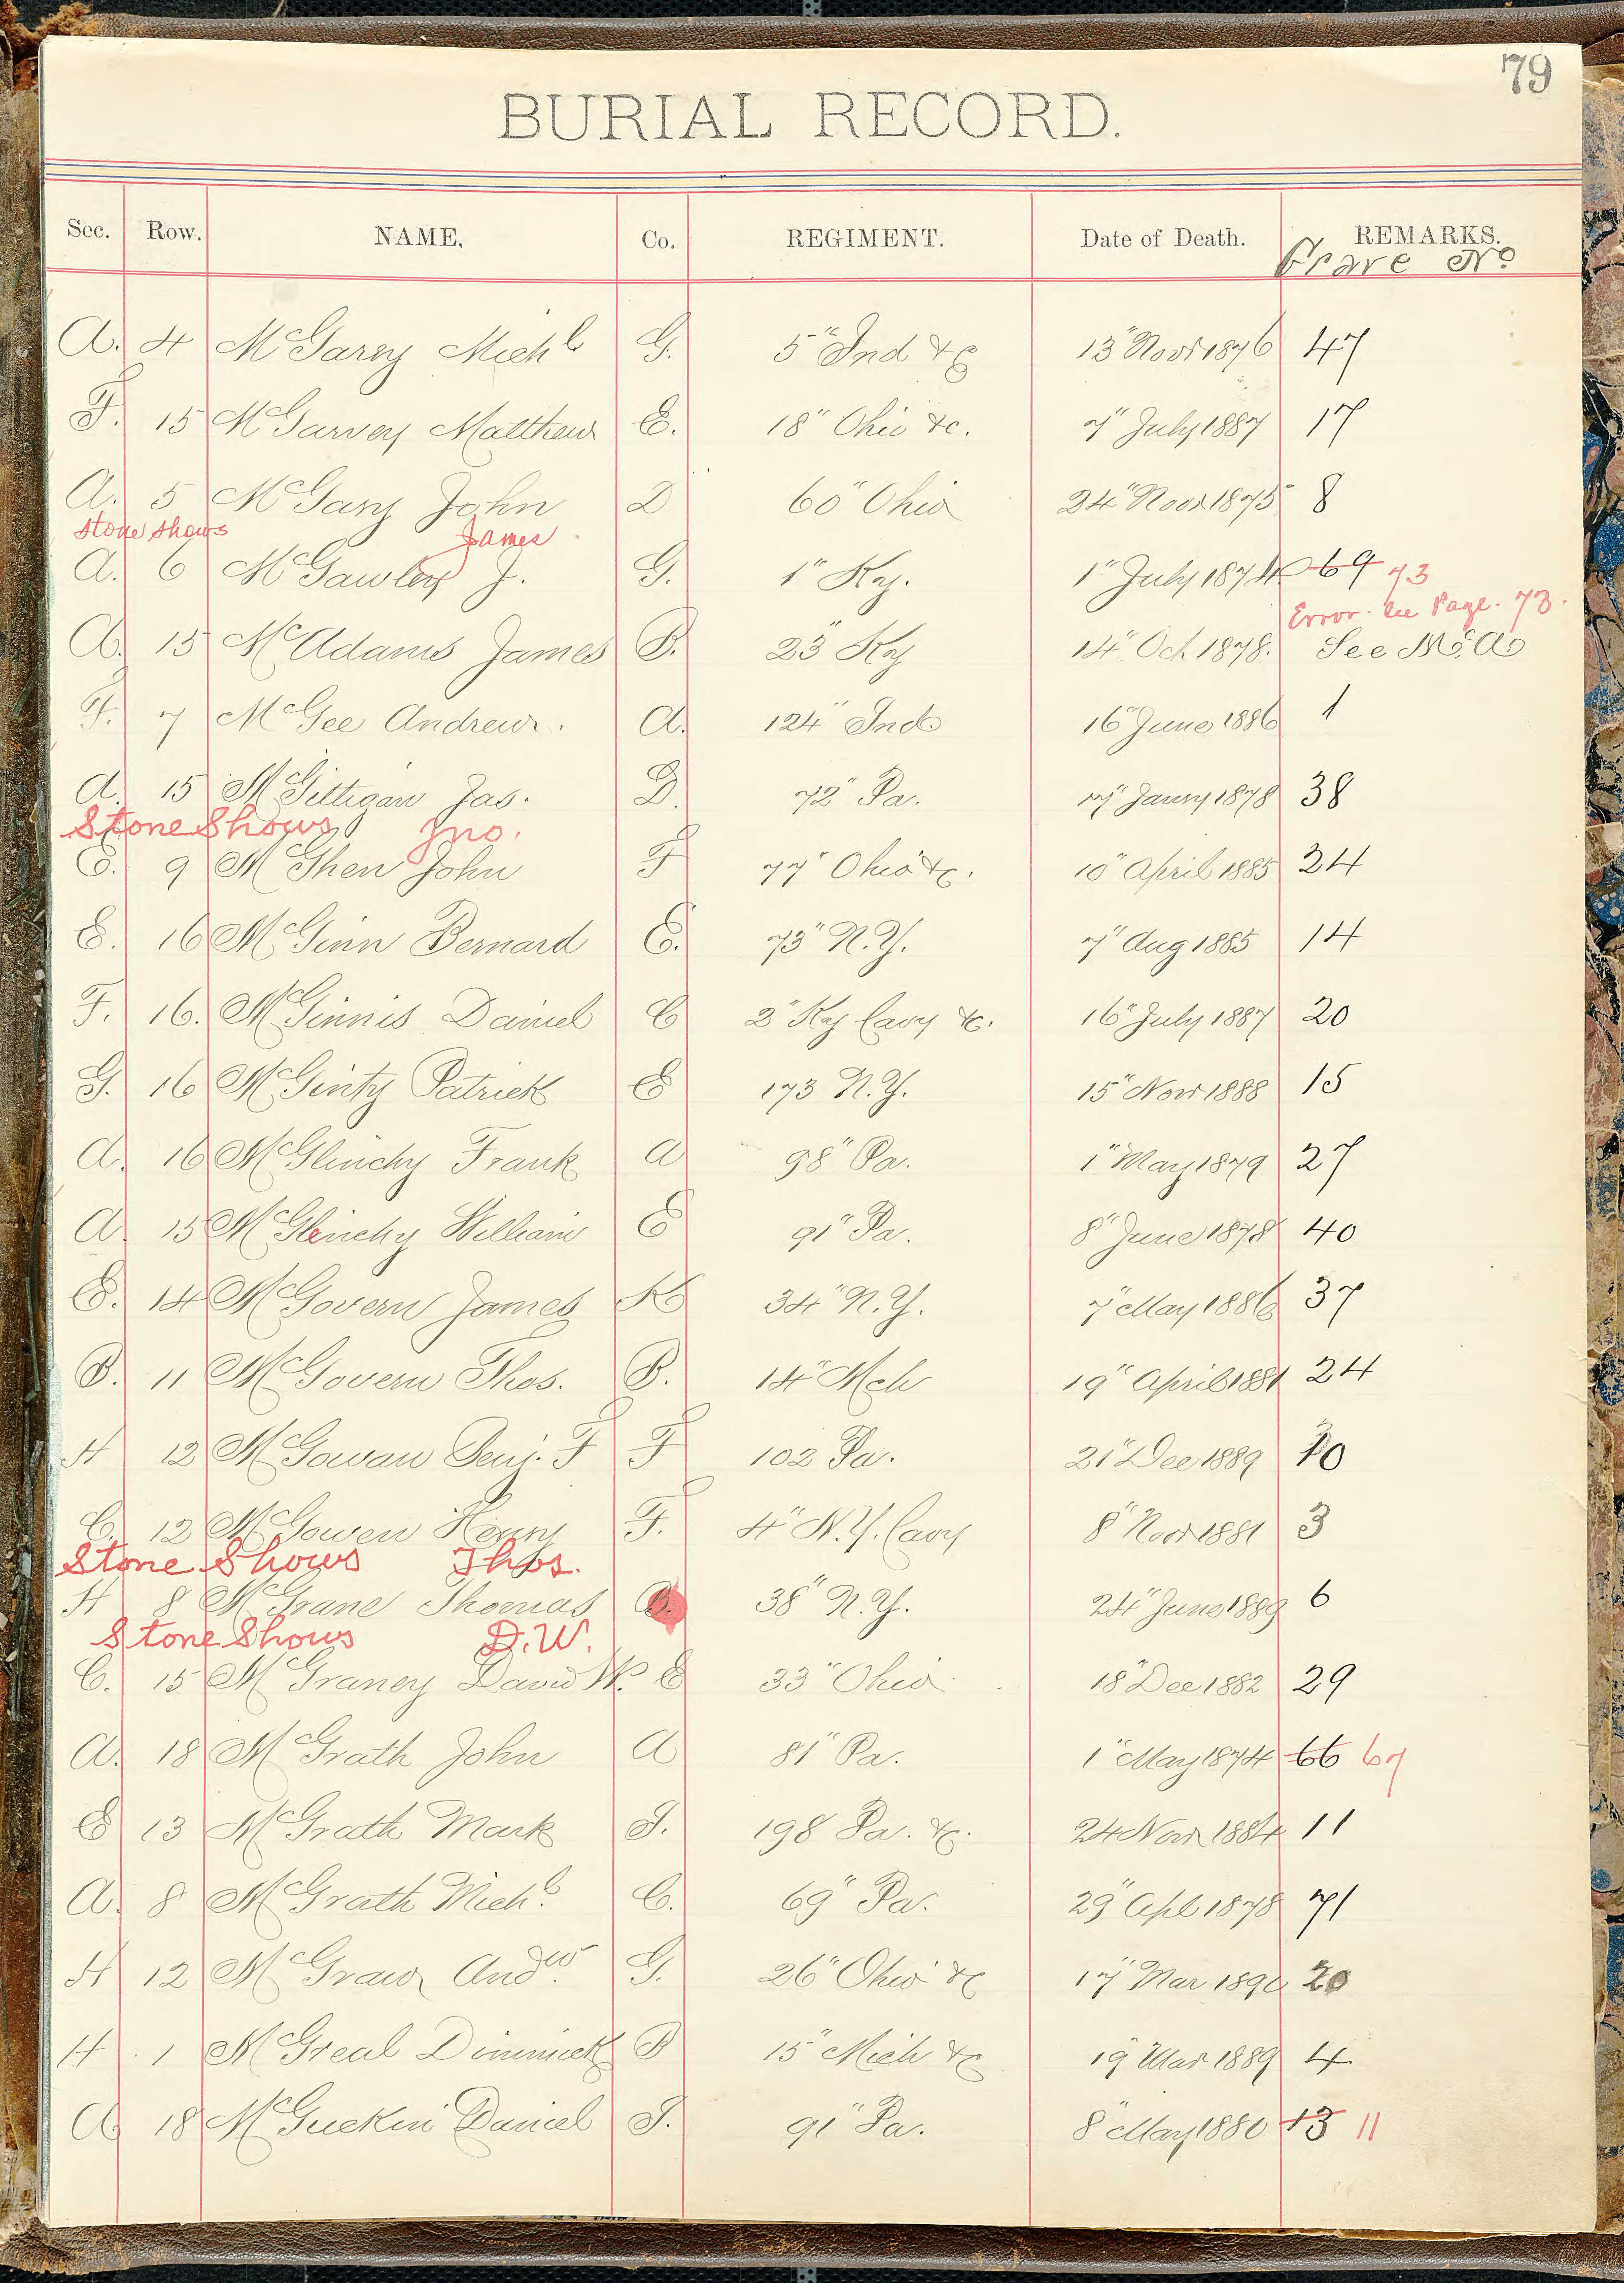 79
BURIAL RECORD.
Sec. Row. NAME. Co. REGIMENT. Date of Death. REMARKS.
Grave No
A. 4 McGarey Michl G. 5" Ind &c 13" Novr 1876 47
F. 15 McGarvey Matthew E. 18" Ohio &c. 7" July 1887 17
A. 5 McGary John D 60" Ohio 24" Novr 1875 8
Stone Shows James
A. 6 McGawley J. G. 1" Ky. 1" July 1874 69 73
Error. See Page. 73.
A. 15 McAdams James B. 23" Ky 14" Oct 1878. See McA
F. 7 McGee Andrew. A. 124" Ind 16" June 1886 1
A. 15 McGittigan Jas. D. 72" Pa. 7" Janry 1878 38
Stone Shows Jno.
E. 9 McGhen John F 77" Ohio &c. 10" April 1885 24
E. 16 McGinn Bernard E. 73" N.Y. 7" Aug 1885 14
F. 16. McGinnis Daniel C 2" Ky Cavy &c. 16" July 1887 20
G. 16 McGinty Patrick E 173 N.Y. 15" Novr 1888 15
A. 16 McGlinchy Frank A 98" Pa. 1" May 1879 27
A 15 McGlinchy William E 91" Pa. 8" June 1878 40
E. 14 McGovern James K 34" N.Y. 7" May 1886 37
B. 11 McGovern Thos. B. 14" Mch 19" April 1881 24
H 12 McGowan Benj. F F 102 Pa. 21" Dec 1889 10
C. 12 McGowen Henry F. 4" N.Y. Cavy 8" Novr 1881 3
Stone Shows Thos.
H 8 McGrane Thomas B. 38" N.Y. 24" June 1889 6
Stone Shows D.W.
C. 15 McGraney David W. E 33" Ohio 18" Dec 1882 29
A. 18 McGrath John A 81" Pa. 1" May 1874 66 67
E 13 McGrath Mark I. 198 Pa. &c. 24 Novr 1884 11
A. 8 McGrath Michl. C. 69" Pa. 29" Apl 1878 71
H 12 McGraw Andw. G. 26" Ohio &c 17" Mar 1890 20
H 1 McGreal Dimmick B 15" Mich &c 19" Mar 1889 4
A 18 McGuckin Daniel I. 91" Pa. 8" May 1880 13 11